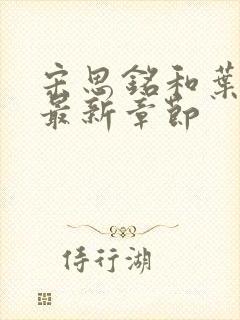 宋思銘和葉
最新章節
侍行湖